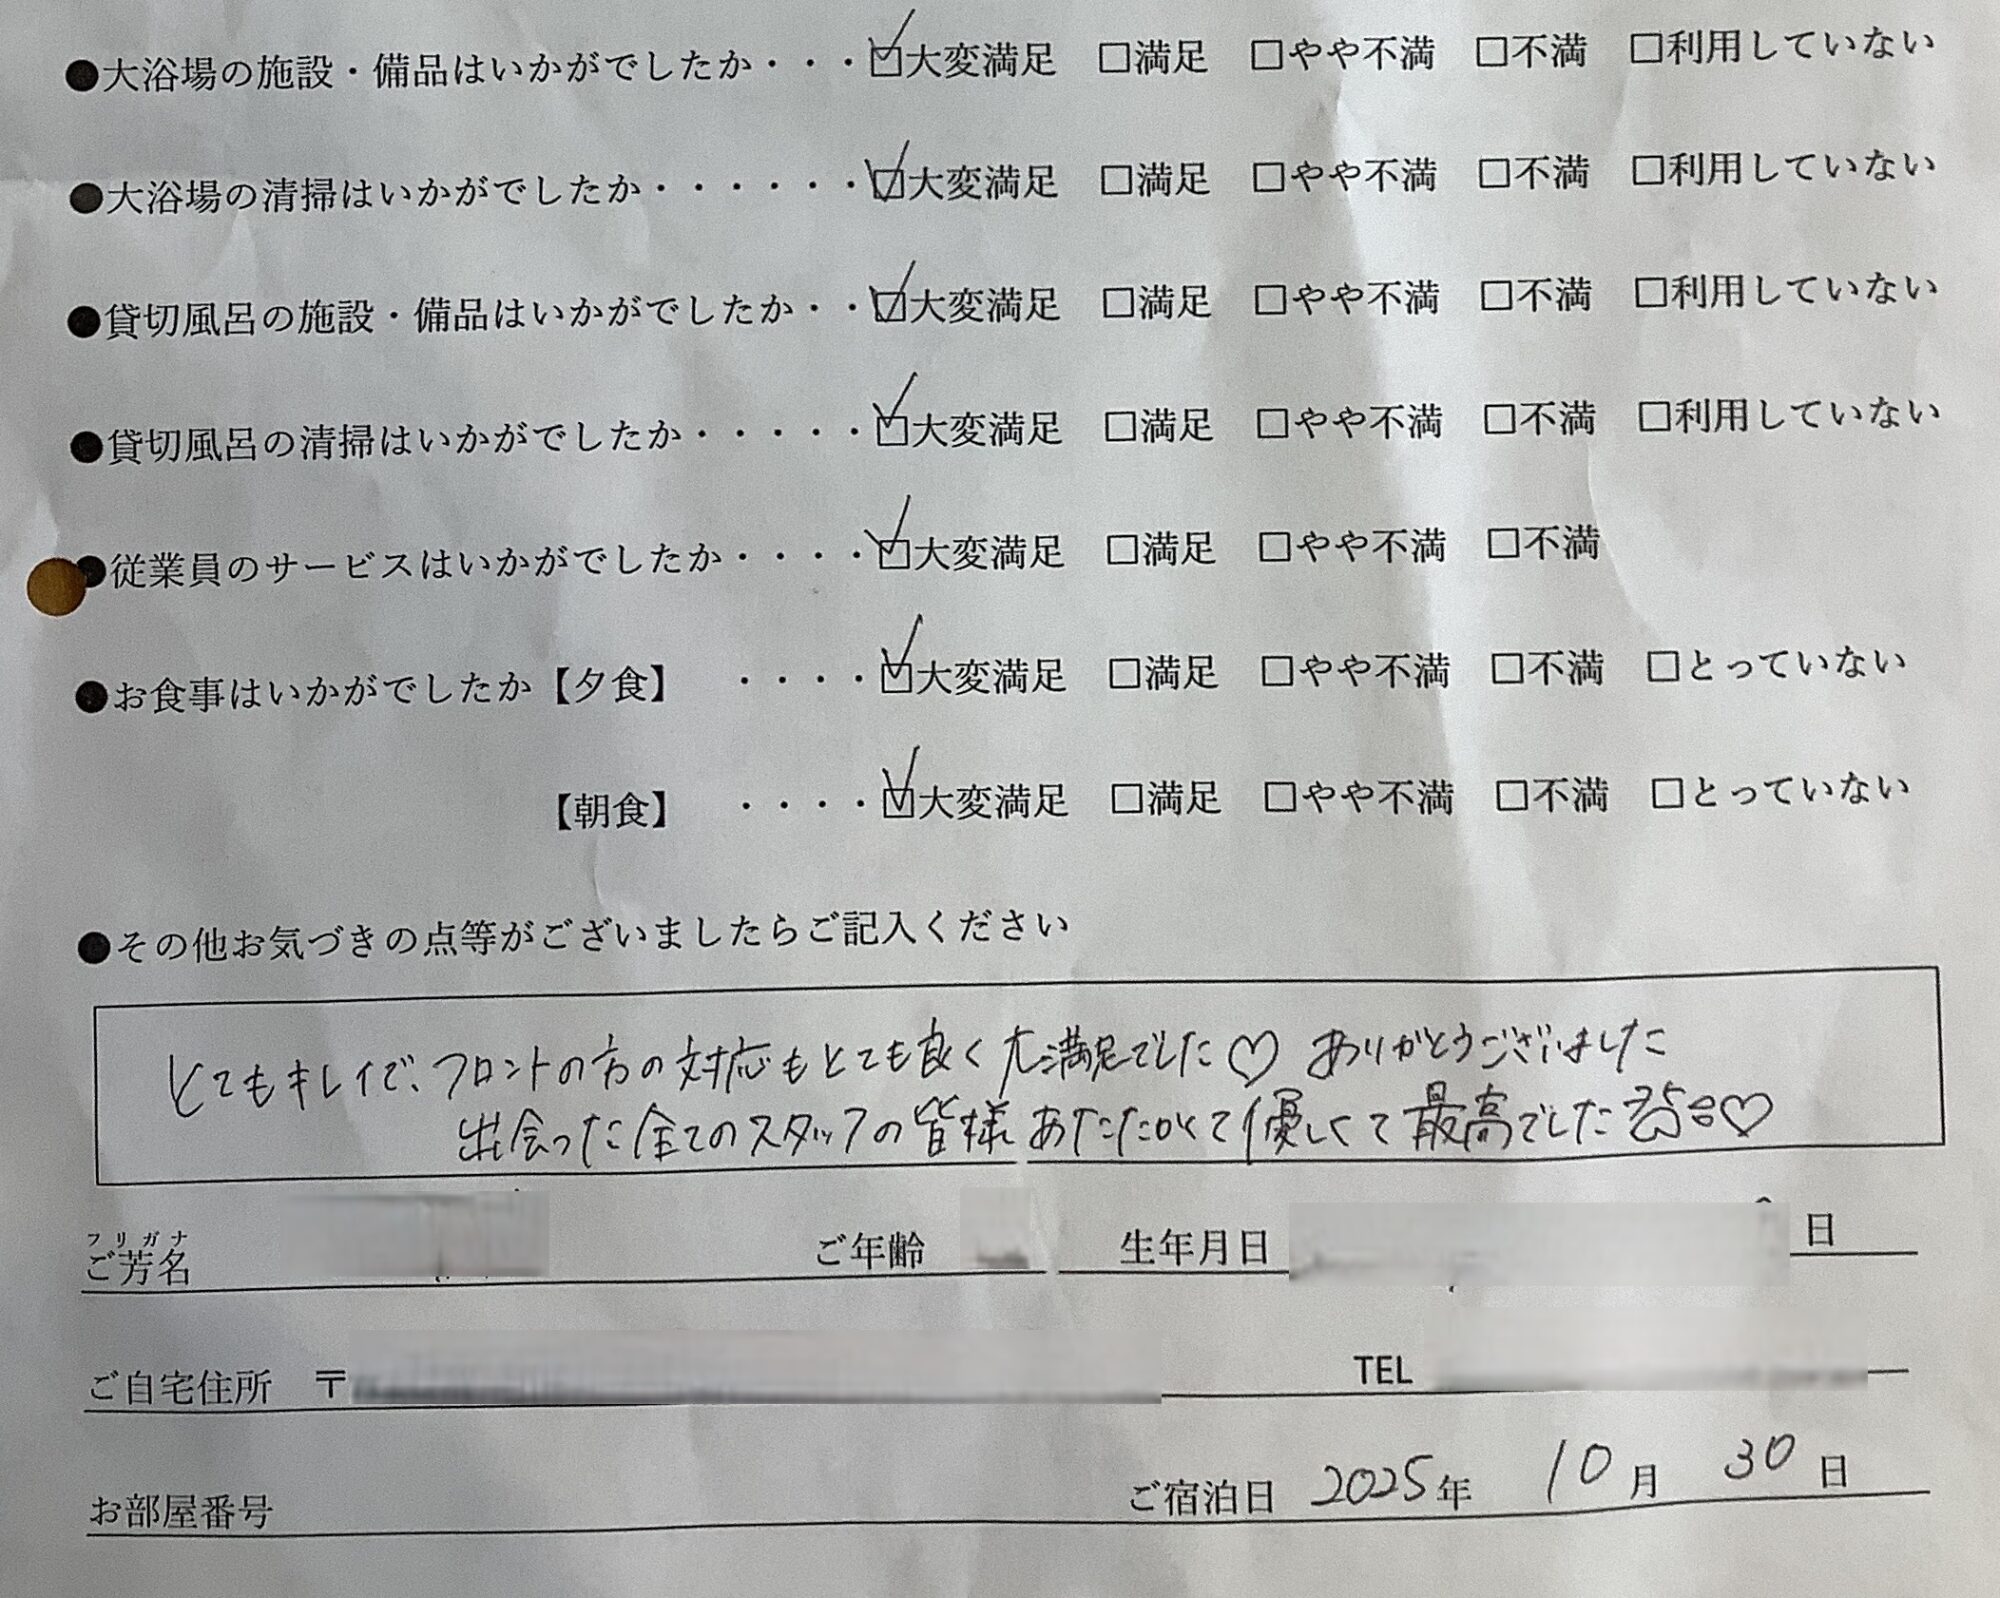 ●大浴場の施設・備品はいかがでしたか・・・☑大変満足 □満足 □やや不満 □不満 □利用していない
●大浴場の清掃はいかがでしたか・・・・・・☑大変満足 □満足 □やや不満 □不満 □利用していない
●貸切風呂の施設・備品はいかがでしたか・・☑大変満足 □満足 □やや不満 □不満 □利用していない
●貸切風呂の清掃はいかがでしたか・・・・・☑大変満足 □満足 □やや不満 □不満 □利用していない
●従業員のサービスはいかがでしたか・・・・☑大変満足 □満足 □やや不満 □不満
●お食事はいかがでしたか【夕食】 ・・・・☑大変満足 □満足 □やや不満 □不満 □とっていない
【朝食】 ・・・・☑大変満足 □満足 □やや不満 □不満 □とっていない
●その他お気づきの点等がございましたらご記入ください
とてもキレイで、フロントの方の対応もとても良く大満足でした♡ ありがとうございました
出会った全てのスタッフの皆様あたたかくて優しくて最高でした♡
フリガナ
ご芳名 ご年齢 生年月日 日
ご自宅住所 〒 TEL
お部屋番号 ご宿泊日 2025年 10月 30日